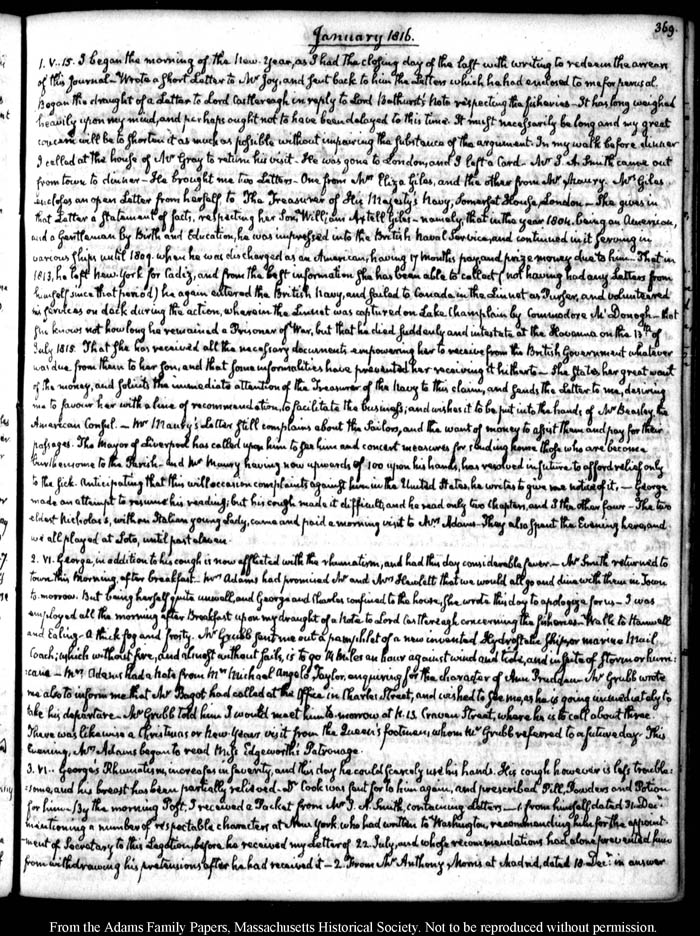 369.
January 1816.
1. V..15. I began the morning of the New Year, as I had the closing day of the last with writing to redeem the arrears
of this Journal—Wrote a short Letter to Mr Joy, and sent back to him the Letters which he had enclosed to me for perusal.
Began the draught of a Letter to Lord Castlereagh in reply to Lord Bathurst's Note respecting the fisheries—It has long weighed
heavily upon my mind, and perhaps ought not to have been delayed to this time. It must necessarily be long and my great
concern will be to shorten it as much as possible without impairing the substance of the argument. In my walk before dinner
I called at the house of Mr Gray to return his visit. He was gone to London, and I left a Card—Mr J. A. Smith came out
from town to dinner—He brought me two Letters—One from Mrs Eliza Giles, and the other from Mr Maury. Mrs Giles
encloses an open Letter from herself to The Treasurer of His Majesty's Navy, Somerset House, London—She gives in
that Letter a Statement of facts, respecting her Son, William Axtell Giles—namely, that in the year 1804. being an American,
and a Gentleman by Birth and Education, he was impressed into the British Naval Service, and continued in it serving in
various ships until 1809. when he was discharged as an American, having 17 months pay, and prize money due to him—That in
1813, he left New York for Cadiz, and from the best information she has been able to collect (not having had any Letters from
himself since that period) he again entered the British Navy, and sailed to Canada in the Linnet as Purser, and volunteered
his services on deck during the action, wherein the Linnet was captured on Lake Champlain by Commodore McDonogh—that
she knows not how long he remained a Prisoner of War, but that he died suddenly and intestate at the Havanna on the 13th of
July 1815. That she has received all the necessary documents empowering her to receive from the British Government whatever
was due from them to her son, and that some informalities have prevented her receiving it hitherto—She States her great want
of the money, and solicits the immediate attention of the Treasurer of the Navy to this claim, and sends the Letter to me, desiring
me to favour her with a line of recommendation, to facilitate the business; and wishes it to be put into the hands of Mr Beasley the
American Consul.—Mr Maury's Letter still complains about the Sailors, and the want of money to assist them and pay for their
passages. The Mayor of Liverpool has called upon him to see him and concert measures for sending home those who are become
burthensome to the Parish—and Mr Maury having now upwards of 100 upon his hands, has resolved in future to afford relief only
to the sick. Anticipating that this will occasion complaints against him in the United States, he writes to give me notice of it.—George
made an attempt to resume his reading; but his cough made it difficult, and he read only two chapters, and I the other four—The two
eldest Nicholas's, with an Italian young Lady, came and paid a morning visit to Mrs Adams—They also spent the Evening here, and
we all played at Loto, until past eleven.
2. VI. George, in addition to his cough is now afflicted with the rheumatism, and had this day considerable fever.—Mr Smith returned to
town this morning, after breakfast—Mrs Adams had promised Mr and Mrs Hewlett that we would all go and dine with them in Town
to-morrow. But being herself quite unwell, and George and Charles confined to the house, she wrote this day to apologize for us—I was
employed all the morning after Breakfast upon my draught of a Note to Lord Castlereagh concerning the fisheries. Walk to Hanwell
and Ealing—A thick fog and frosty. Mr Grubb sent me out a pamphlet of a new invented Hydrostatic ship or marine Mail
Coach; which without fire, and almost without sails, is to go 14 Miles an hour against wind and tide, and in spite of storm or hurri-
cane—Mrs Adams had a note from Mrs Michael Angelo Taylor, enquiring for the character of Ann Prudgan. Mr Grubb wrote
me also to inform me that Mr Bagot had called at the Office in Charles Street, and wished to see me, as he is going immediately to
take his departure—Mr Grubb told him I would meet him to-morrow at N. 13. Craven Street, where he is to call about three.
There was likewise a Christmas or New Years visit from the Queen's footmen, whom Mr Grubb referred to a future day—This
evening, Mrs Adams began to read Miss Edgeworth's Patronage.
3. VI.. George's Rheumatism, increases in severity, and this day he could scarcely use his hands. His cough however is less trouble-
some, and his breast has been partially relieved—Dr Cook was sent for to him again, and prescribed Pill, Powders and Potion
for him—By the morning Post, I received a Packet from Mr J. A. Smith, containing Letters—1 from himself, dated 31. Decr
mentioning a number of respectable characters at New York who had written to Washington, recommending him for the appoint-
ment of Secretary to this Legation, before he received my Letter of 22. July, and whose recommendations had alone prevented him
from withdrawing his pretensions after he had received it—2. From Mr Anthony Morris at Madrid, dated 10. Decr. in answer
From the Adams Family Papers, Massachusetts Historical Society. Not to be reproduced without permission.